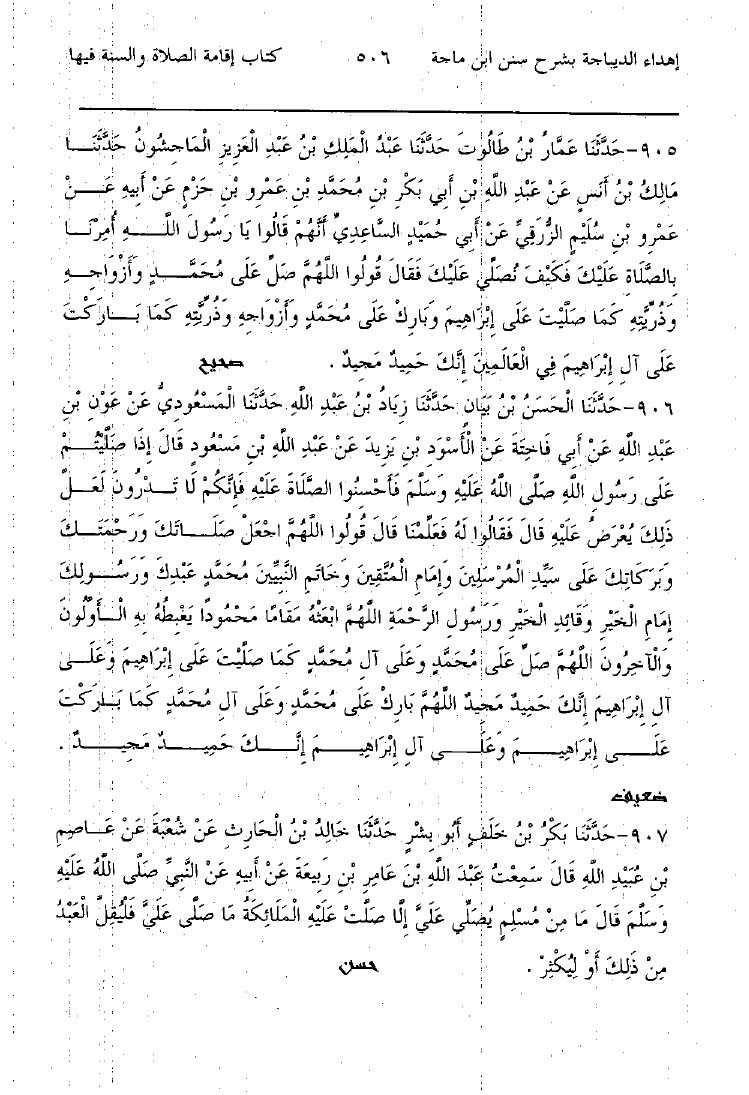 إهداء الديباجة بشرح سنن ابن ماجة ٥٠٦ كتاب إقامة الصلاة والسنة فيها
٩٠٥-حَدَّثَنَا عَمَّارُ بْنُ طَالُوتَ حَدَّثَنَا عَبْدُ الْمَلِكِ بْنُ عَبْدِ الْعَزِيزِ الْمَاجِشُونُ حَدَّثَنَا
مَالِكُ بْنُ أَنَسٍ عَنْ عَبْدِ اللَّهِ بْنِ أَبِي بَكْرِ بْنِ مُحَمَّدِ بْنِ عَمْرِو بْنِ حَزْمٍ عَنْ أَبِيهِ عَنْ
عَمْرِو بْنِ سُلَيْمٍ الزُّرَقِيِّ عَنْ أَبِي حُمَيْدٍ السَّاعِدِيِّ أَنَّهُمْ قَالُوا يَا رَسُولَ اللَّهِ أُمِرْنَا
بِالصَّلَاةِ عَلَيْكَ فَكَيْفَ نُصَلِّي عَلَيْكَ فَقَالَ قُولُوا اللَّهُمَّ صَلِّ عَلَى مُحَمَّدٍ وَأَزْوَاجِهِ
وَذُرِّيَّتِهِ كَمَا صَلَّيْتَ عَلَى إِبْرَاهِيمَ وَبَارِكْ عَلَى مُحَمَّدٍ وَأَزْوَاجِهِ وَذُرِّيَّتِهِ كَمَا بَارَكْتَ
عَلَى آلِ إِبْرَاهِيمَ فِي الْعَالَمِينَ إِنَّكَ حَمِيدٌ مَجِيدٌ . صحيح
٩٠٦-حَدَّثَنَا الْحَسَنُ بْنُ بَيَانٍ حَدَّثَنَا زِيَادُ بْنُ عَبْدِ اللَّهِ حَدَّثَنَا الْمَسْعُودِيُّ عَنْ عَوْنِ بْنِ
عَبْدِ اللَّهِ عَنْ أَبِي فَاخِتَةَ عَنْ الْأَسْوَدِ بْنِ يَزِيدَ عَنْ عَبْدِ اللَّهِ بْنِ مَسْعُودٍ قَالَ إِذَا صَلَّيْتُمْ
عَلَى رَسُولِ اللَّهِ صَلَّى اللَّهُ عَلَيْهِ وَسَلَّمَ فَأَحْسِنُوا الصَّلَاةَ عَلَيْهِ فَإِنَّكُمْ لَا تَدْرُونَ لَعَلَّ
ذَلِكَ يُعْرَضُ عَلَيْهِ قَالَ فَقَالُوا لَهُ فَعَلِّمْنَا قَالَ قُولُوا اللَّهُمَّ اجْعَلْ صَلَاتَكَ وَرَحْمَتَكَ
وَبَرَكَاتِكَ عَلَى سَيِّدِ الْمُرْسَلِينَ وَإِمَامِ الْمُتَّقِينَ وَخَاتَمِ النَّبِيِّينَ مُحَمَّدٍ عَبْدِكَ وَرَسُولِكَ
إِمَامِ الْخَيْرِ وَقَائِدِ الْخَيْرِ وَرَسُولِ الرَّحْمَةِ اللَّهُمَّ ابْعَثْهُ مَقَامًا مَحْمُودًا يَغْبِطُهُ بِهِ الْأَوَّلُونَ
وَالْآخِرُونَ اللَّهُمَّ صَلِّ عَلَى مُحَمَّدٍ وَعَلَى آلِ مُحَمَّدٍ كَمَا صَلَّيْتَ عَلَى إِبْرَاهِيمَ وَعَلَى
آلِ إِبْرَاهِيمَ إِنَّكَ حَمِيدٌ مَجِيدٌ اللَّهُمَّ بَارِكْ عَلَى مُحَمَّدٍ وَعَلَى آلِ مُحَمَّدٍ كَمَا بَارَكْتَ
عَلَى إِبْرَاهِيمَ وَعَلَى آلِ إِبْرَاهِيمَ إِنَّكَ حَمِيدٌ مَجِيدٌ .
ضعيف
٩٠٧-حَدَّثَنَا بَكْرُ بْنُ خَلَفٍ أَبُو بِشْرٍ حَدَّثَنَا خَالِدُ بْنُ الْحَارِثِ عَنْ شُعْبَةَ عَنْ عَاصِمِ
بْنِ عُبَيْدِ اللَّهِ قَالَ سَمِعْتُ عَبْدَ اللَّهِ بْنَ عَامِرِ بْنِ رَبِيعَةَ عَنْ أَبِيهِ عَنْ النَّبِيِّ صَلَّى اللَّهُ عَلَيْهِ
وَسَلَّمَ قَالَ مَا مِنْ مُسْلِمٍ يُصَلِّي عَلَيَّ إِلَّا صَلَّتْ عَلَيْهِ الْمَلَائِكَةُ مَا صَلَّى عَلَيَّ فَلْيُقِلَّ الْعَبْدُ
مِنْ ذَلِكَ أَوْ لِيُكْثِرْ . حسن